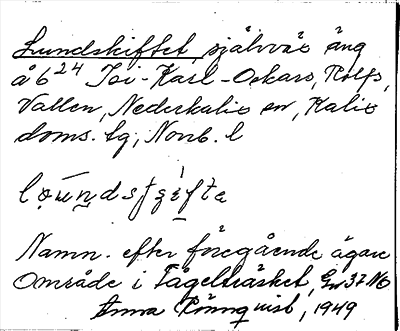 Lundskiftet, självväx äng
å 6²⁴ Toi-Karl-Oskars, Rolfs,
Vallen, Nederkalix sn, Kalix
doms. lg, Norrb. l
Namn. efter föregående ägare
Område i Fågelträsket, Gw 37 NO
Anna Rönnqvist, 1949